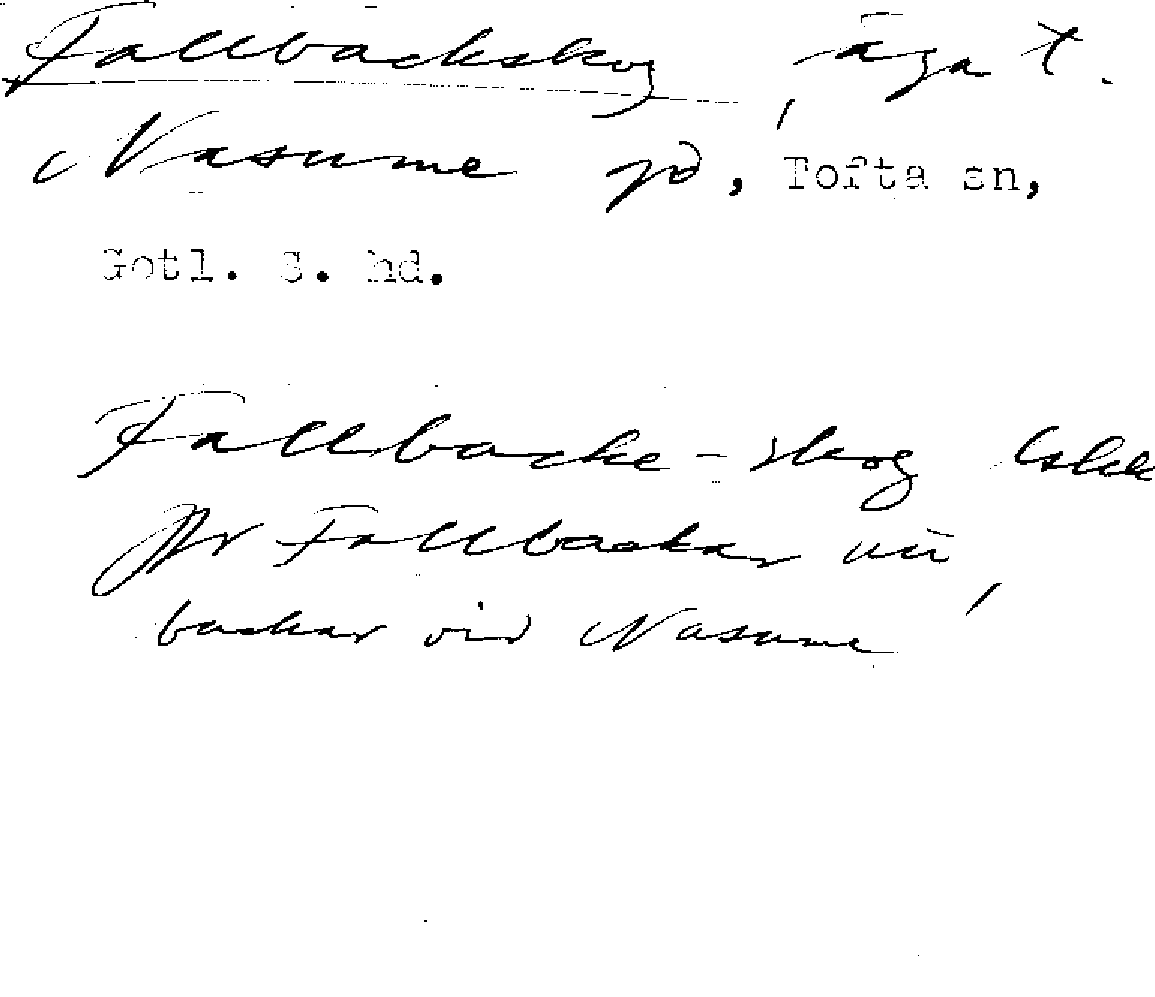 Fallbackskog, äga t.
Nasume gd, Tofta sn,
Gotl. S. hd.
Fallbacke-skog
Jfr Fallbackar
backar vid Nasume